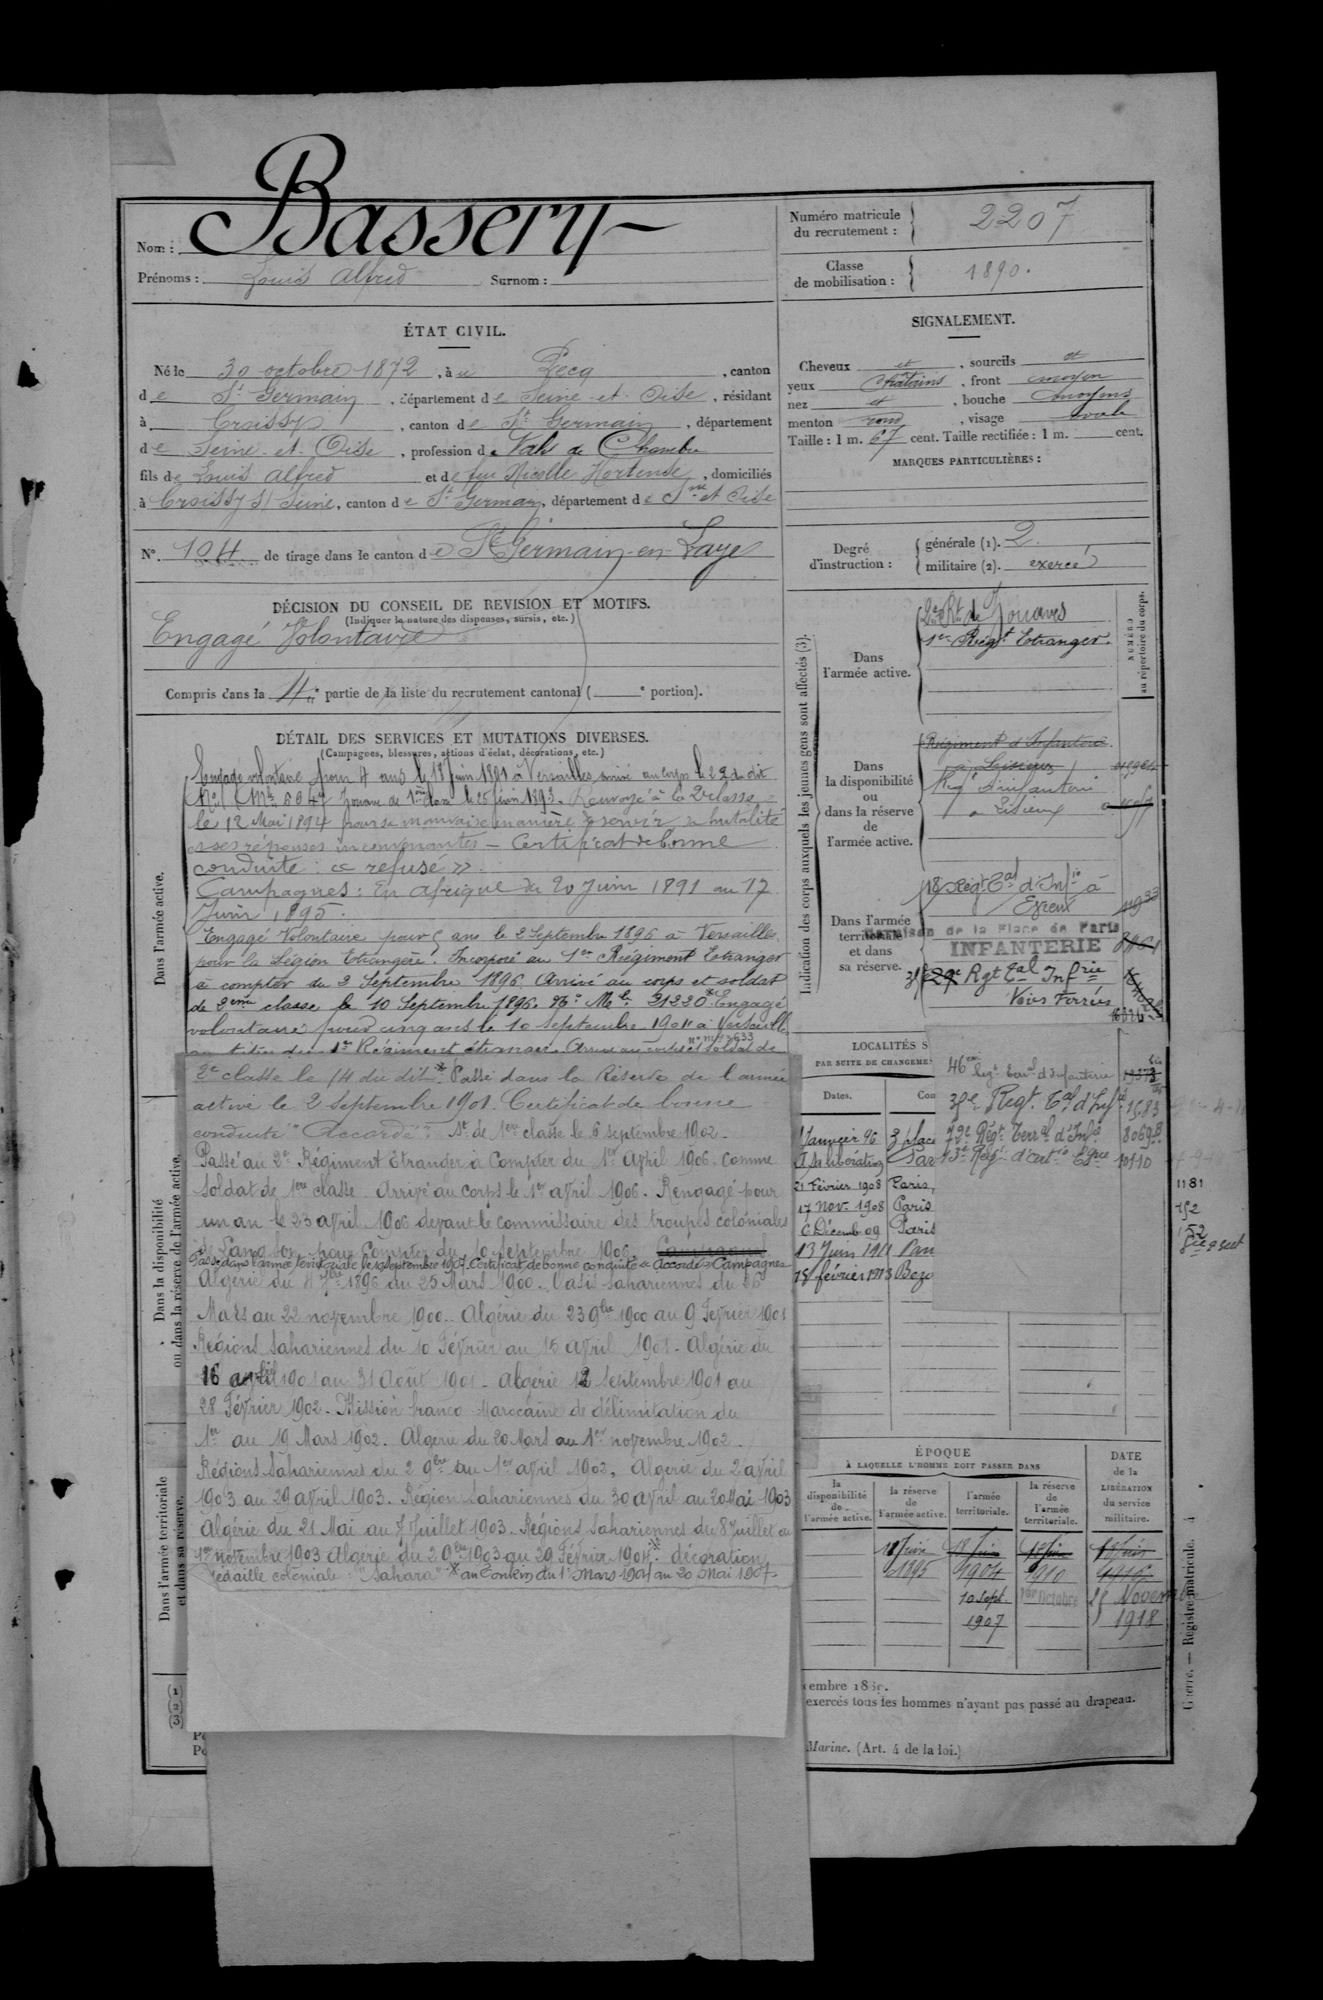 Nom : Bassery
Prénoms : Louis Alfred Surnom :
Numéro matricule du recrutement : 2207
Classe de mobilisation : 1890.
ÉTAT CIVIL.
Né le 30 octobre 1872, à u Pecq, canton
de St Germain, département de Seine-et-Oise, résidant
à Croissy, canton de St Germain, département
de Seine-et-Oise, profession de Valet de Chambre
fils de Louis Alfred et de feu Nicolle Hortense, domiciliés
à Croissy s/ Seine, canton de St Germain, département de Sne et Oise
N° 104 de tirage dans le canton de St Germain-en-Laye
SIGNALEMENT.
Cheveux et, sourcils et
yeux Chatains, front moyen
nez et, bouche moyens
menton rond, visage ovale
Taille : 1 m. 67 cent. Taille rectifiée : 1 m. cent.
MARQUES PARTICULIÈRES :
Degré d'instruction : générale (1). 2
militaire (2). exercé
DÉCISION DU CONSEIL DE REVISION ET MOTIFS.
(Indiquer la nature des dispenses, sursis, etc.)
Engagé Volontaire
Compris dans la 4e partie de la liste du recrutement cantonal ( e portion).
DÉTAIL DES SERVICES ET MUTATIONS DIVERSES.
(Campagnes, blessures, actions d'éclat, décorations, etc.)
Dans l'armée active.
Engagé volontaire pour 4 ans le 18 Juin 1891 à Versailles, arrivé au corps le 22 du dit
Zouave de 1ère classe le 25 1893. Renvoyé à la 2e classe
le 12 Mai 1894 pour sa mauvaise manière de servir sa brutalité
et ses réponses inconvenantes – Certificat de bonne
conduite : « refusé »
Campagnes : En Afrique du 20 Juin 1891 au 17
Juin 1895.
Engagé Volontaire pour 5 ans le 2 Septembre 1896 à Versailles
pour la Légion Etrangère. Incorporé au 1er Régiment Etranger
à compter du 2 Septembre 1896. Arrivé au corps et soldat
de 2eme classe le 10 Septembre 1896. No Mle 21220 * Engagé
volontaire pour cinq ans le 10 septembre 1901 à Versailles
au titre du 1er Régiment étranger. Arrivé au corps et soldat de
2e classe le 14 du dit. * Passé dans la Réserve de l'armée
active le 2 Septembre 1901. Certificat de bonne
conduite "Accordé". St de 1ere classe le 6 septembre 1902.
Passé au 2e Régiment Etranger à Compter du 1er Avril 1906. Comme
Soldat de 1ere classe. Arrivé au corps le 1er avril 1906. Rengagé pour
un an le 23 avril 1906 devant le Commissaire des troupes coloniales
pour Compter du 10 Septembre 1906. Campagnes
Passé dans l'armée territoriale le 10 septembre 1907. Certificat de bonne conduite « accordé » Campagnes
Algérie du 4 7bre 1896 au 25 Mars 1900. Oasis sahariennes du 26
Mars au 22 novembre 1900. Algérie du 23 9bre 1900 au 9 Février 1901
Régions Sahariennes du 10 Février au 15 avril 1901 - Algérie du
16 avril 1901 au 31 Août 1901 - Algérie 12 Septembre 1901 au
28 Février 1902. Mission franco-Marocaine de délimitation du
1er au 19 Mars 1902. Algérie du 20 Mars au 1er novembre 1902.
Régions Sahariennes du 2 9bre au 1er avril 1902, Algérie du 2 avril
1903 au 29 avril 1903. Régions Sahariennes du 30 avril au 20 Mai 1903
Algérie du 21 Mai au 7 Juillet 1903. Régions Sahariennes du 8 Juillet au
1er novembre 1903 Algérie du 2 9bre 1903 au 29 Février 1904. * décoration
Médaille coloniale : "Sahara" * au Tonkin du 1er Mars 1904 au 20 Mai 1907.
Dans la disponibilité ou dans la réserve de l'armée active.
Dans l'armée territoriale et dans sa réserve.
(1)
(2)
(3)
Indication des corps auxquels les jeunes gens sont affectés (3).
NUMÉRO au répertoire du corps.
Dans l'armée active.
2e Rt de Zouaves
1er Régt Etranger.
Dans la disponibilité ou dans la réserve de l'armée active.
Régiment d'Infanterie
à Lisieux
Régt d'infanterie
à Lisieux
Dans l'armée territoriale et dans sa réserve.
18 Régt Tal d'Infie à
Evreux
Garnison de la Place de Paris
INFANTERIE
Rgt Tal Infrie
Voies Ferrées
LOCALITÉS S
PAR SUITE DE CHANGEME
Dates.
46em Regt Terral d'Infanterie
Regt Tal d'Infie 1583
72e Régt Terral d'Infie 8069B
13e Régt d'artie 10110
1 Janvier 96 3 place
Libération Par
21 Février 1908 Paris,
17 Nov. 1908 Paris
6 Décemb. 09 Paris
13 Juin 1911 Pan
18 février 1913 Bezo
1181
152
ÉPOQUE
À LAQUELLE L'HOMME DOIT PASSER DANS
la disponibilité de l'armée active.
la réserve de l'armée active.
l'armée territoriale.
la réserve de l'armée territoriale.
DATE de la LIBÉRATION du service militaire.
18 Juin 18 Juin 18 Juin 18 Juin
1895 1904 1910 1916
10 Sept. 1er Octobre 25 Novembre
1907 1918
embre 18
exercés tous les hommes n'ayant pas passé au drapeau.
Marine. (Art. 4 de la loi.)
Guerre. — Registre matricule. 4